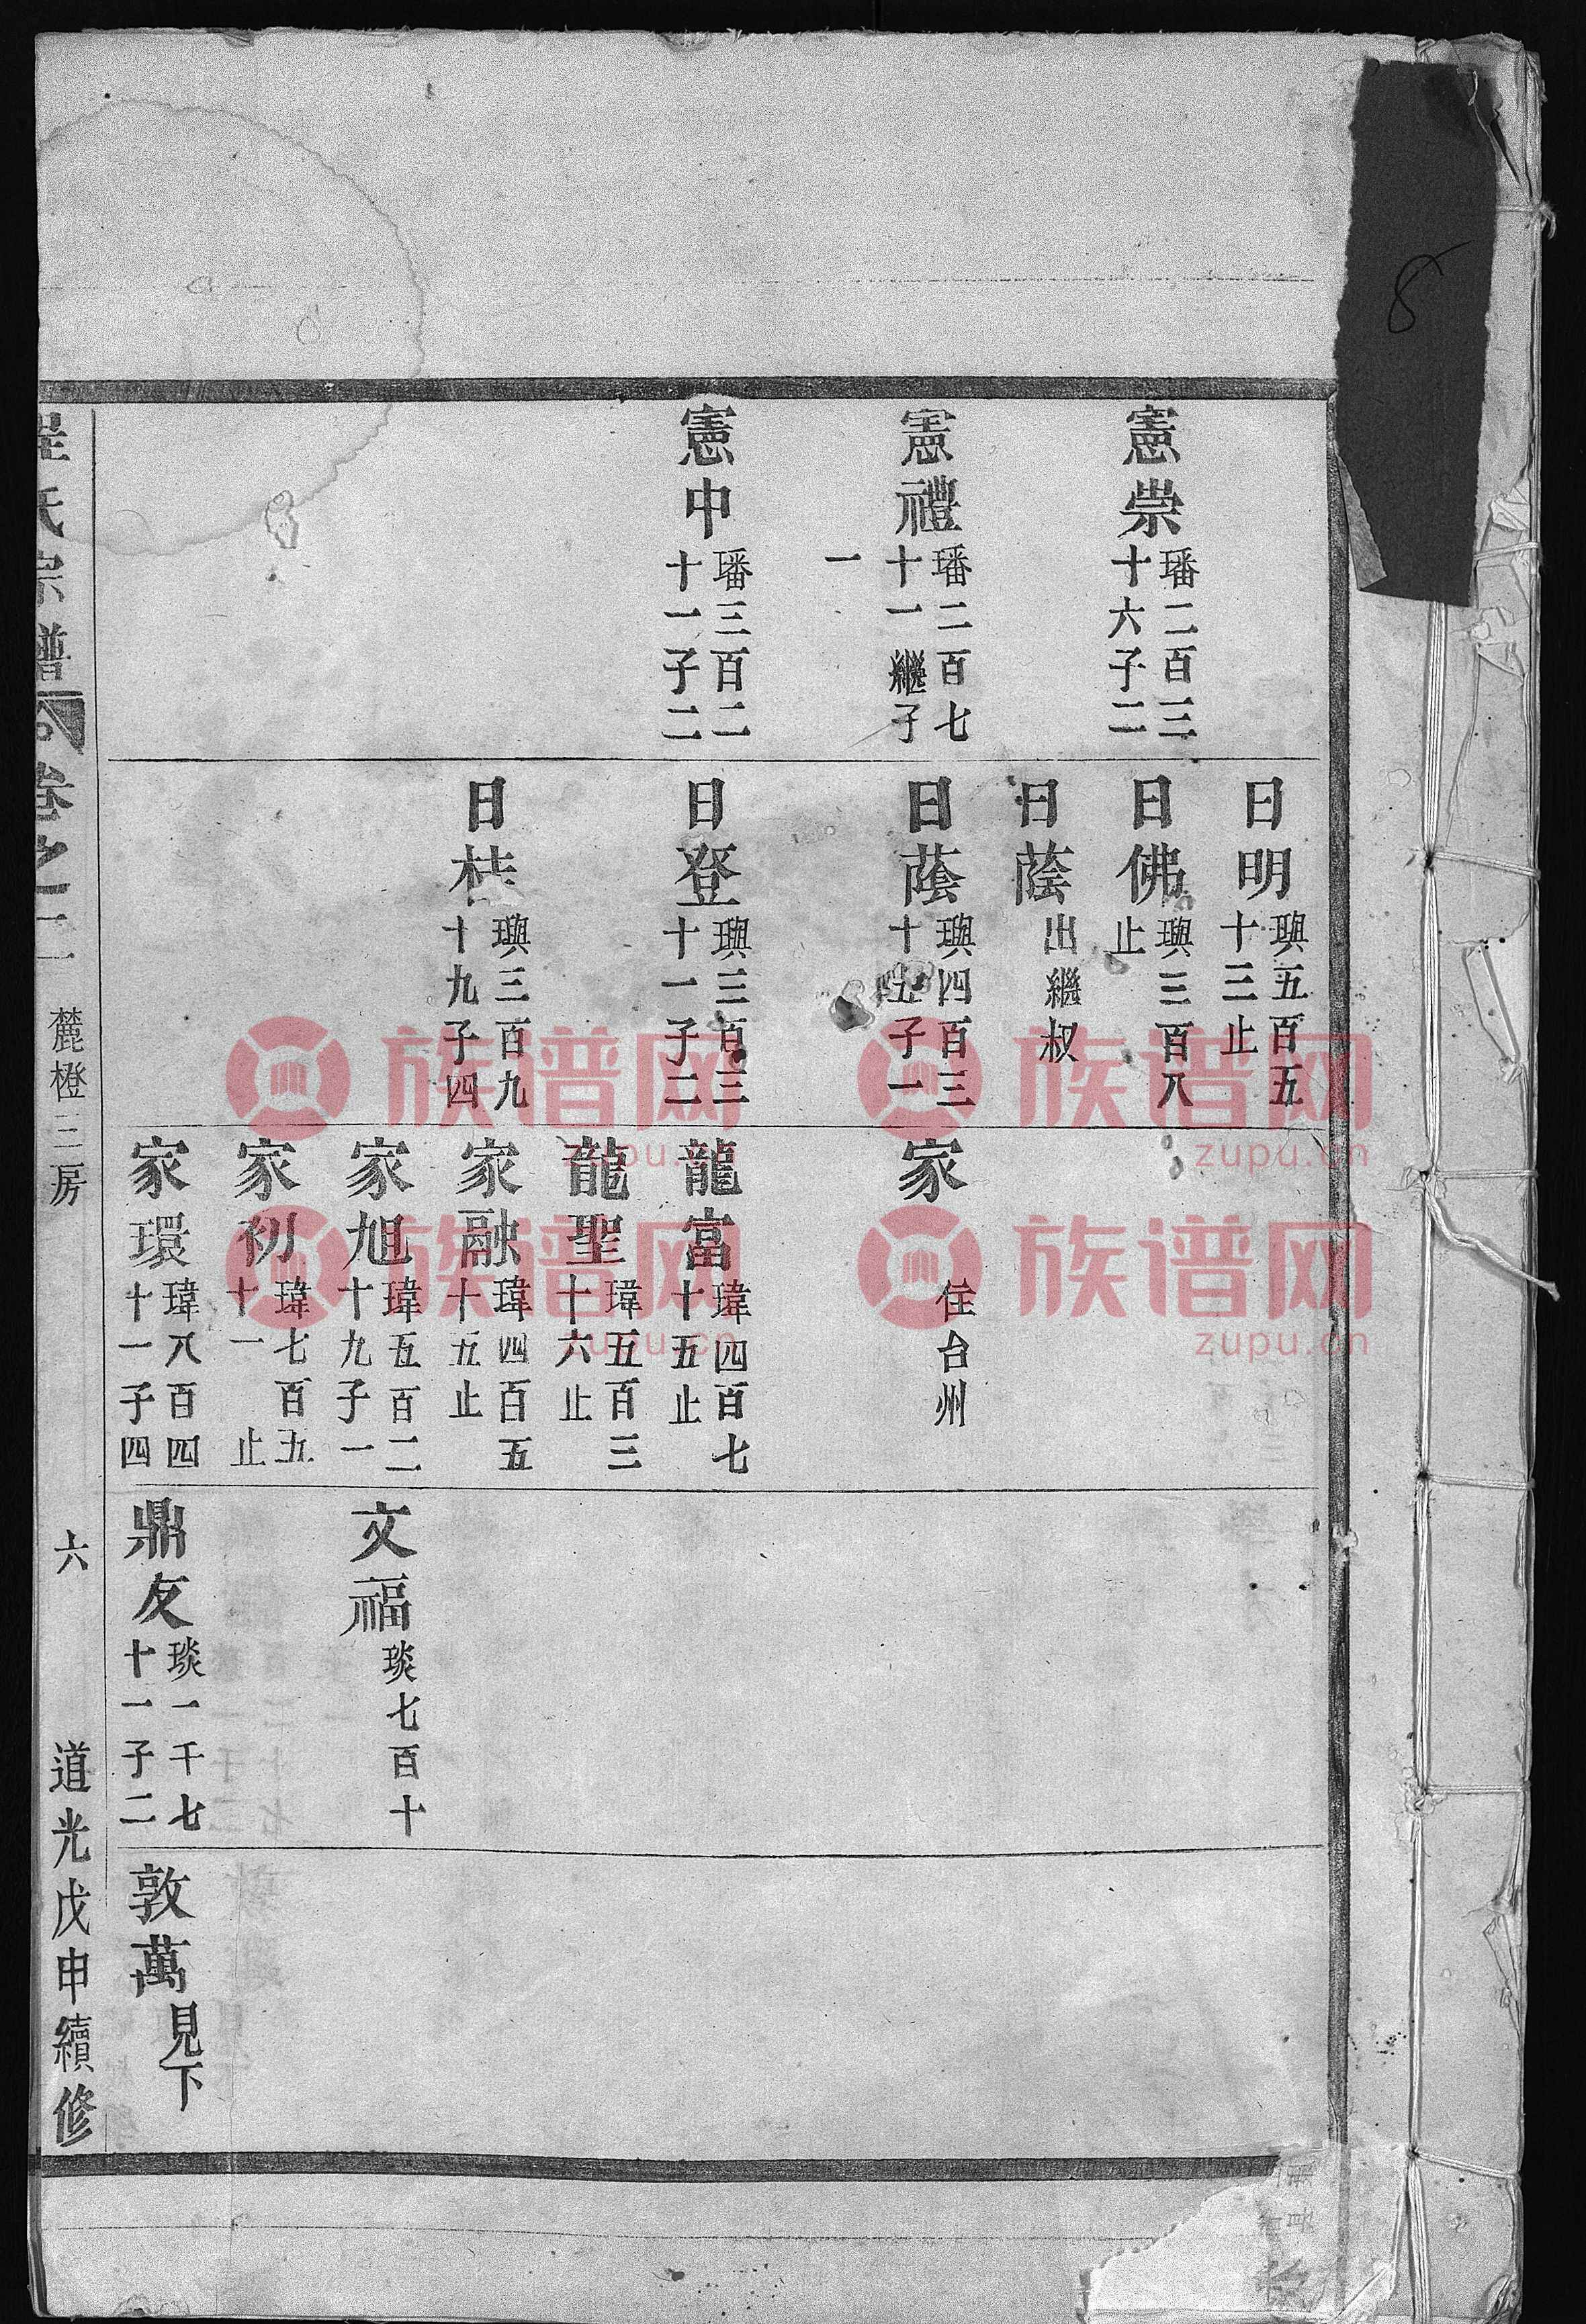 8
憲崇 璠二百三十六子二
憲禮 璠二百七十一繼子一
憲中 璠三百二十一子二
日明 璵五百五十三止
日佛 璵三百八止
日蔭 出繼叔
日蔭 璵四百三十五子一
日登 璵三百三十一子二
日桂 璵三百九十九子四
家 住台州
龍富 瑋四百七十五止
龍聖 瑋五百三十六止
家融 瑋四百五十五止
家旭 瑋五百二十九子一
家初 瑋七百五十一止
家環 瑋八百四十一子四
文福 琰七百十
鼎友 琰一千七十一子二
敦萬 見下
氏宗譜 卷之二 麓橙三房 六 道光戊申續修
族谱网
zupu.cn
族谱网
zupu.cn
族谱网
zupu.cn
族谱网
zupu.cn